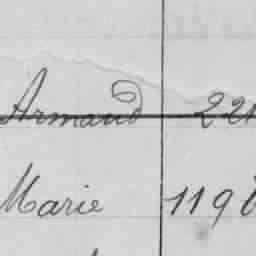 Armand
Marie 119